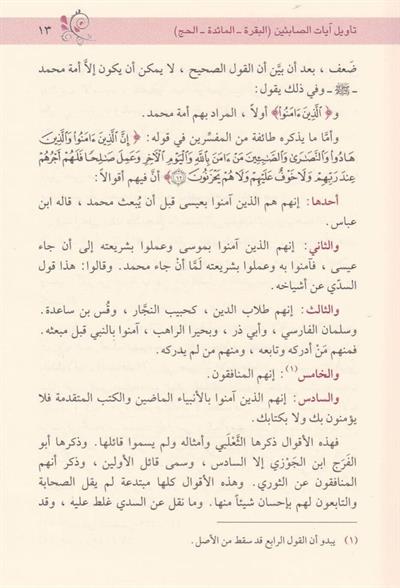 تأويل آيات الصابئين (البقرة ـ المائدة ـ الحج)
١٣
ضَعف ، بعد أن بيَّن أن القول الصحيح ، لا يمكن أن يكون إلاَّ أمة محمد
ـ ﷺ ـ وفي ذلك يقول:
و﴿ الَّذِينَ ءَامَنُوا﴾ أولاً ، المراد بهم أمة محمد.
وأمَّا ما يذكره طائفة من المفسِّرين في قوله: ﴿ إِنَّ الَّذِينَ ءَامَنُوا وَالَّذِينَ
هَادُوا وَالنَّصَٰرَىٰ وَالصَّٰبِـِٔينَ مَنْ ءَامَنَ بِاللَّهِ وَالْيَوْمِ الْآخِرِ وَعَمِلَ صَٰلِحًا فَلَهُمْ أَجْرُهُمْ
عِندَ رَبِّهِمْ وَلَا خَوْفٌ عَلَيْهِمْ وَلَا هُمْ يَحْزَنُونَ ﴿٦٢﴾ ﴾ أنَّ فيهم أقوالاً:
أحدها: إنهم هم الذين آمنوا بعيسى قبل أن يُبعث محمد ، قاله ابن
عباس.
والثاني: إنهم الذين آمنوا بموسى وعملوا بشريعته إلى أن جاء
عيسى ، فآمنوا به وعملوا بشريعته لَمَّا أنْ جاء محمد. وقالوا: هذا قول
السدّي عن أشياخه.
والثالث: إنهم طلاب الدين ، كحبيب النجَّار ، وقُس بن ساعدة.
وسلمان الفارسي ، وأبي ذر ، وبحيرا الراهب ، آمنوا بالنبي قبل مبعثه.
فمنهم مَنْ أدركه وتابعه ، ومنهم من لم يدركه.
والخامس(١): إنهم المنافقون.
والسادس: إنهم الذين آمنوا بالأنبياء الماضين والكتب المتقدمة فلا
يؤمنون بك ولا بكتابك.
فهذه الأقوال ذكرها الثَّعْلَبي وأمثاله ولم يسموا قائلها. وذكرها أبو
الفَرَج ابن الجَوْزي إلا السادس ، وسمى قائل الأولين ، وذكر أنهم
المنافقون عن الثوري. وهذه الأقوال كلها مبتدعة لم يقل الصحابة
والتابعون لهم بإحسان شيئاً منها. وما نقل عن السدي غلط عليه ، وقد
(١) يبدو أن القول الرابع قد سقط من الأصل.